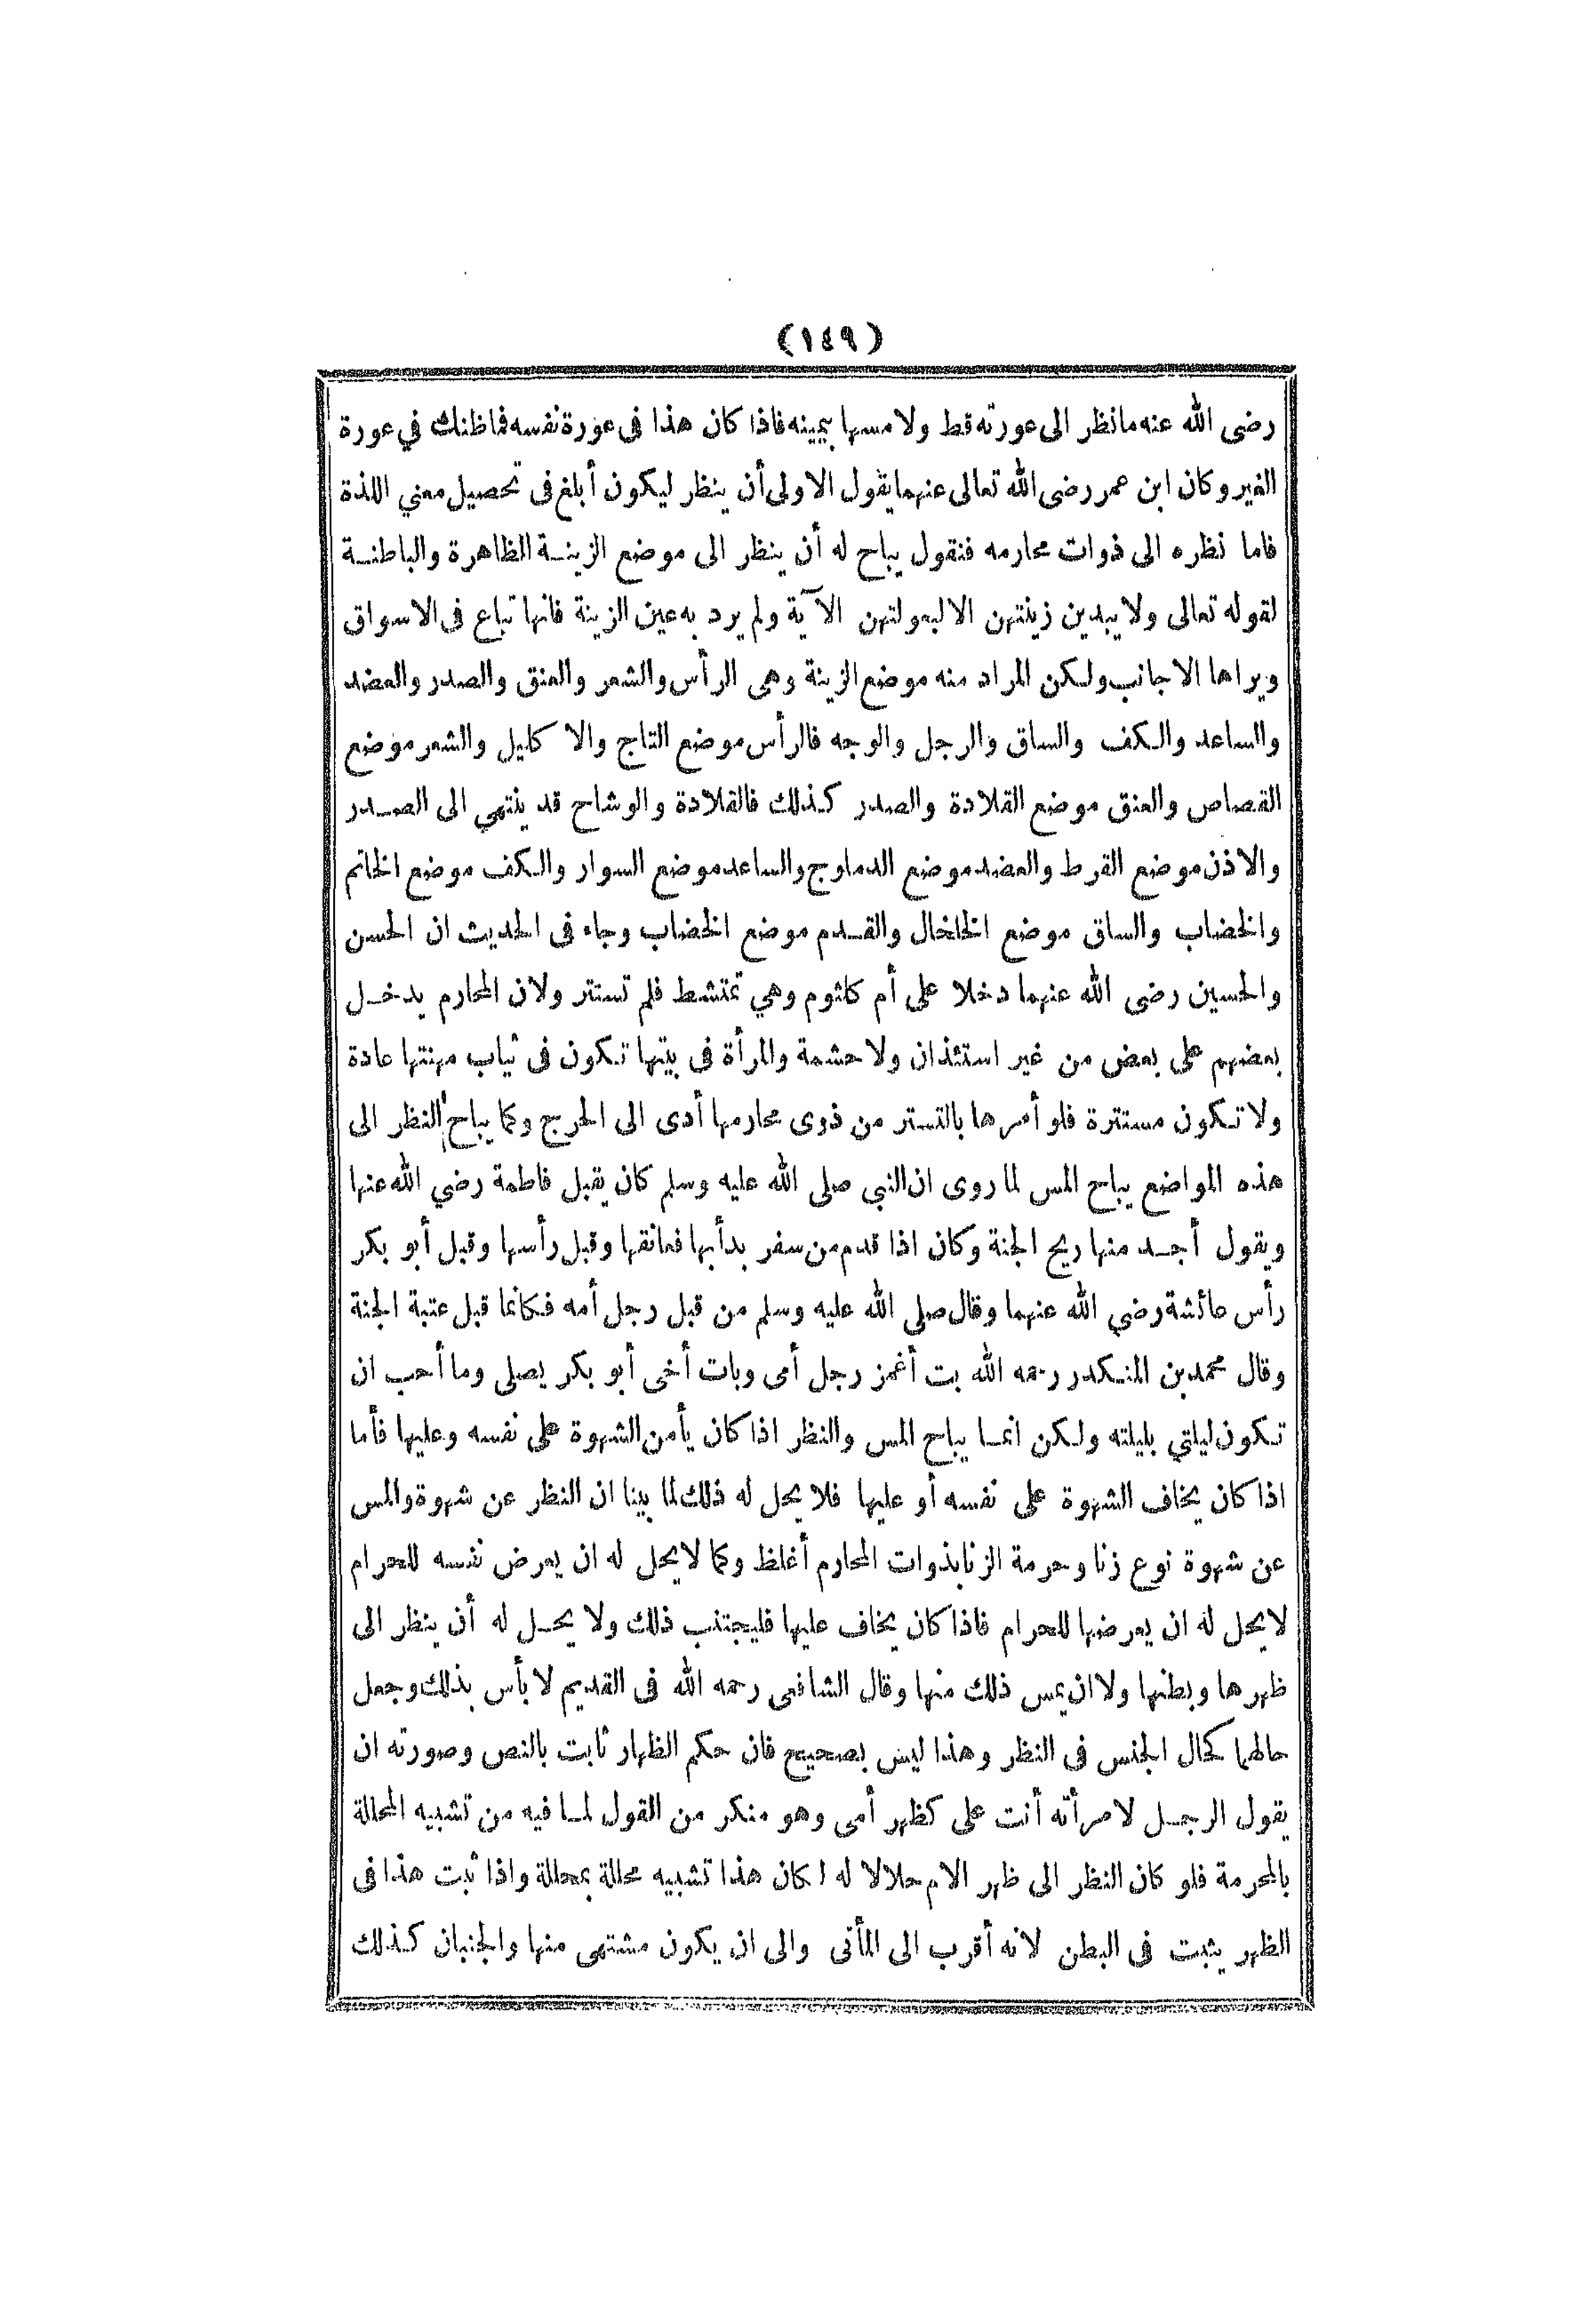 (١٤٩)
رضى الله عنه ما نظر الى عورته قط ولا مسها بيمينه فاذا كان هذا فى عورة نفسه فما ظنك في عورة
الغير وكان ابن عمر رضى الله تعالى عنهما يقول الاولى أن ينظر ليكون أبلغ فى تحصيل معني اللذة
فاما نظره الى ذوات محارمه فنقول يباح له أن ينظر الى موضع الزينة الظاهرة والباطنة
لقوله تعالى ولا يبدين زينتهن الا لبعولتهن الآية ولم يرد به عين الزينة فانها تباع فى الاسواق
ويراها الاجانب ولكن المراد منه موضع الزينة وهى الرأس والشعر والعنق والصدر والعضد
والساعد والكف والساق والرجل والوجه فالرأس موضع التاج والا كليل والشعر موضع
القصاص والعنق موضع القلادة والصدر كذلك فالقلادة والوشاح قد ينتهي الى الصدر
والاذن موضع القرط والعضد موضع الدماوج والساعد موضع السوار والكف موضع الخاتم
والخضاب والساق موضع الخلخال والقدم موضع الخضاب وجاء فى الحديث ان الحسن
والحسين رضى الله عنهما دخلا على أم كلثوم وهي تمتشط فلم تستتر ولان المحارم يدخل
بعضهم على بعض من غير استئذان ولا حشمة والمرأة فى بيتها تكون فى ثياب مهنتها عادة
ولا تكون مستترة فلو أمرها بالتستر من ذوى محارمها أدى الى الحرج وكما يباح النظر الى
هذه المواضع يباح المس لما روى ان النبي صلى الله عليه وسلم كان يقبل فاطمة رضي الله عنها
ويقول أجد منها ريح الجنة وكان اذا قدم من سفر بدأ بها فعانقها وقبل رأسها وقبل أبو بكر
رأس عائشة رضي الله عنهما وقال صلى الله عليه وسلم من قبل رجل أمه فكانما قبل عتبة الجنة
وقال محمد بن المنكدر رحمه الله بت أغمز رجل أمى وبات أخى أبو بكر يصلى وما أحب ان
تكون ليلتي بليلته ولكن انما يباح المس والنظر اذا كان يأمن الشهوة على نفسه وعليها فأما
اذا كان يخاف الشهوة على نفسه أو عليها فلا يحل له ذلك لما بينا ان النظر عن شهوة والمس
عن شهوة نوع زنا وحرمة الزنا بذوات المحارم أغلظ وكما لا يحل له ان يعرض نفسه للحرام
لا يحل له ان يعرضها للحرام فاذا كان يخاف عليها فليجتنب ذلك ولا يحل له أن ينظر الى
ظهرها وبطنها ولا ان يمس ذلك منها وقال الشافعى رحمه الله فى القديم لا بأس بذلك وجعل
حالهما كحال الجنس فى النظر وهذا ليس بصحيح فان حكم الظهار ثابت بالنص وصورته ان
يقول الرجل لامرأته أنت على كظهر أمى وهو منكر من القول لما فيه من تشبيه المحللة
بالمحرمة فلو كان النظر الى ظهر الام حلالا له لكان هذا تشبيه محللة بمحللة واذا ثبت هذا فى
الظهر يثبت فى البطن لانه أقرب الى المأتى والى ان يكون مشتهى منها والجنبان كذلك